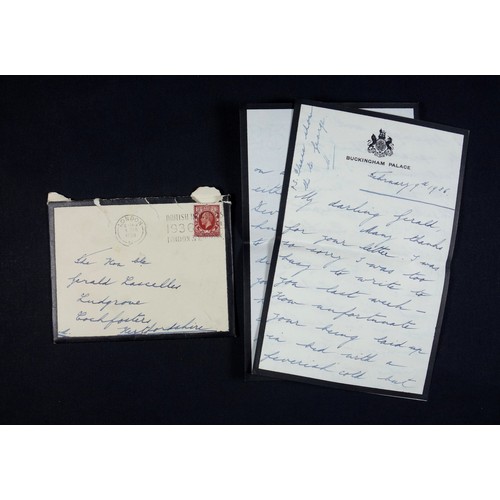 LONDON
BRITISH IN
1936
LONDON
The Hon ble
Gerald Lascelles
Ludgrove
Cockfosters
Hertfordshire
BUCKINGHAM PALACE
February 9th 1936
My darling Gerald,
many thanks
for your letter. I was
so sorry I was too
busy to write to
you last week –
How unfortunate
your being laid up
in bed with a
feverish cold but